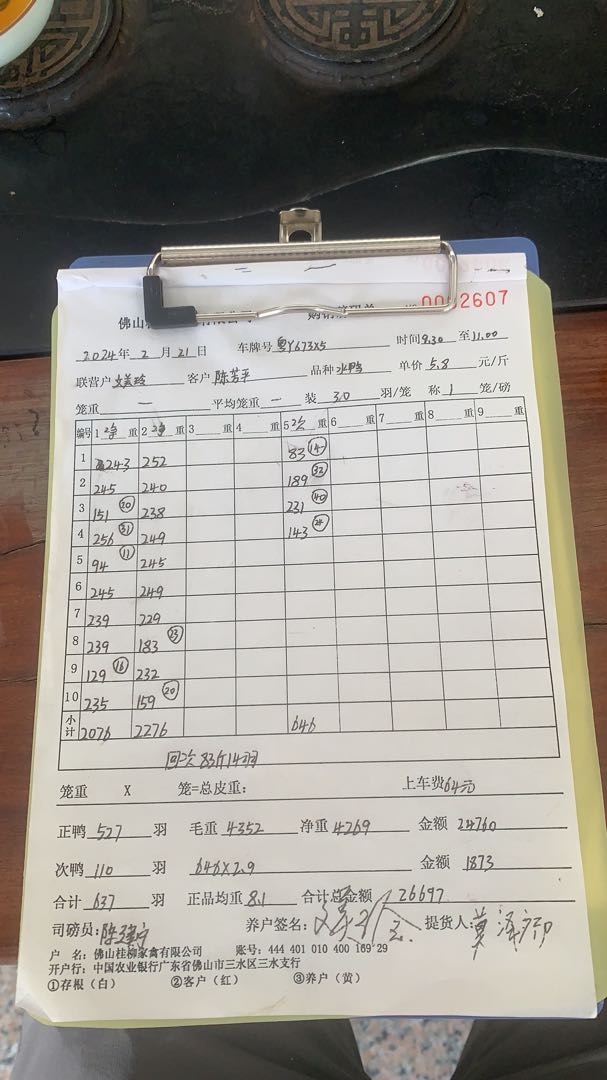 0002607
2024年 2月 21日 车牌号 粤Y673X5 时间9.30 至11.00
联营户 客户 陈芳平 品种 水鸭 单价 5.8 元/斤
笼重 — 平均笼重 — 装 30 羽/笼 称 1 笼/磅
编号 1净 重 2净 重 3 重 4 重 5次 重 6 重 7 重 8 重 9 重
1 243 252 83 (14)
2 245 240 189 (32)
3 151 (20) 238 231 (40)
4 256 (31) 249 143 (24)
5 94 (11) 245
6 245 249
7 239 229
8 239 183 (23)
9 129 (16) 232
10 235 159 (20)
小计 2076 2276 646
回次83斤14羽
笼重 X 笼=总皮重: 上车费64元
正鸭 527 羽 毛重 4352 净重 4269 金额 24760
次鸭 110 羽 646×2.9 金额 1873
合计 637 羽 正品均重 8.1 合计总金额 26697
司磅员: 养户签名: 提货人:
户 名: 佛山桂柳家禽有限公司 账号: 444 401 010 400 169 29
开户行: 中国农业银行广东省佛山市三水区三水支行
①存根（白） ②客户（红） ③养户（黄）